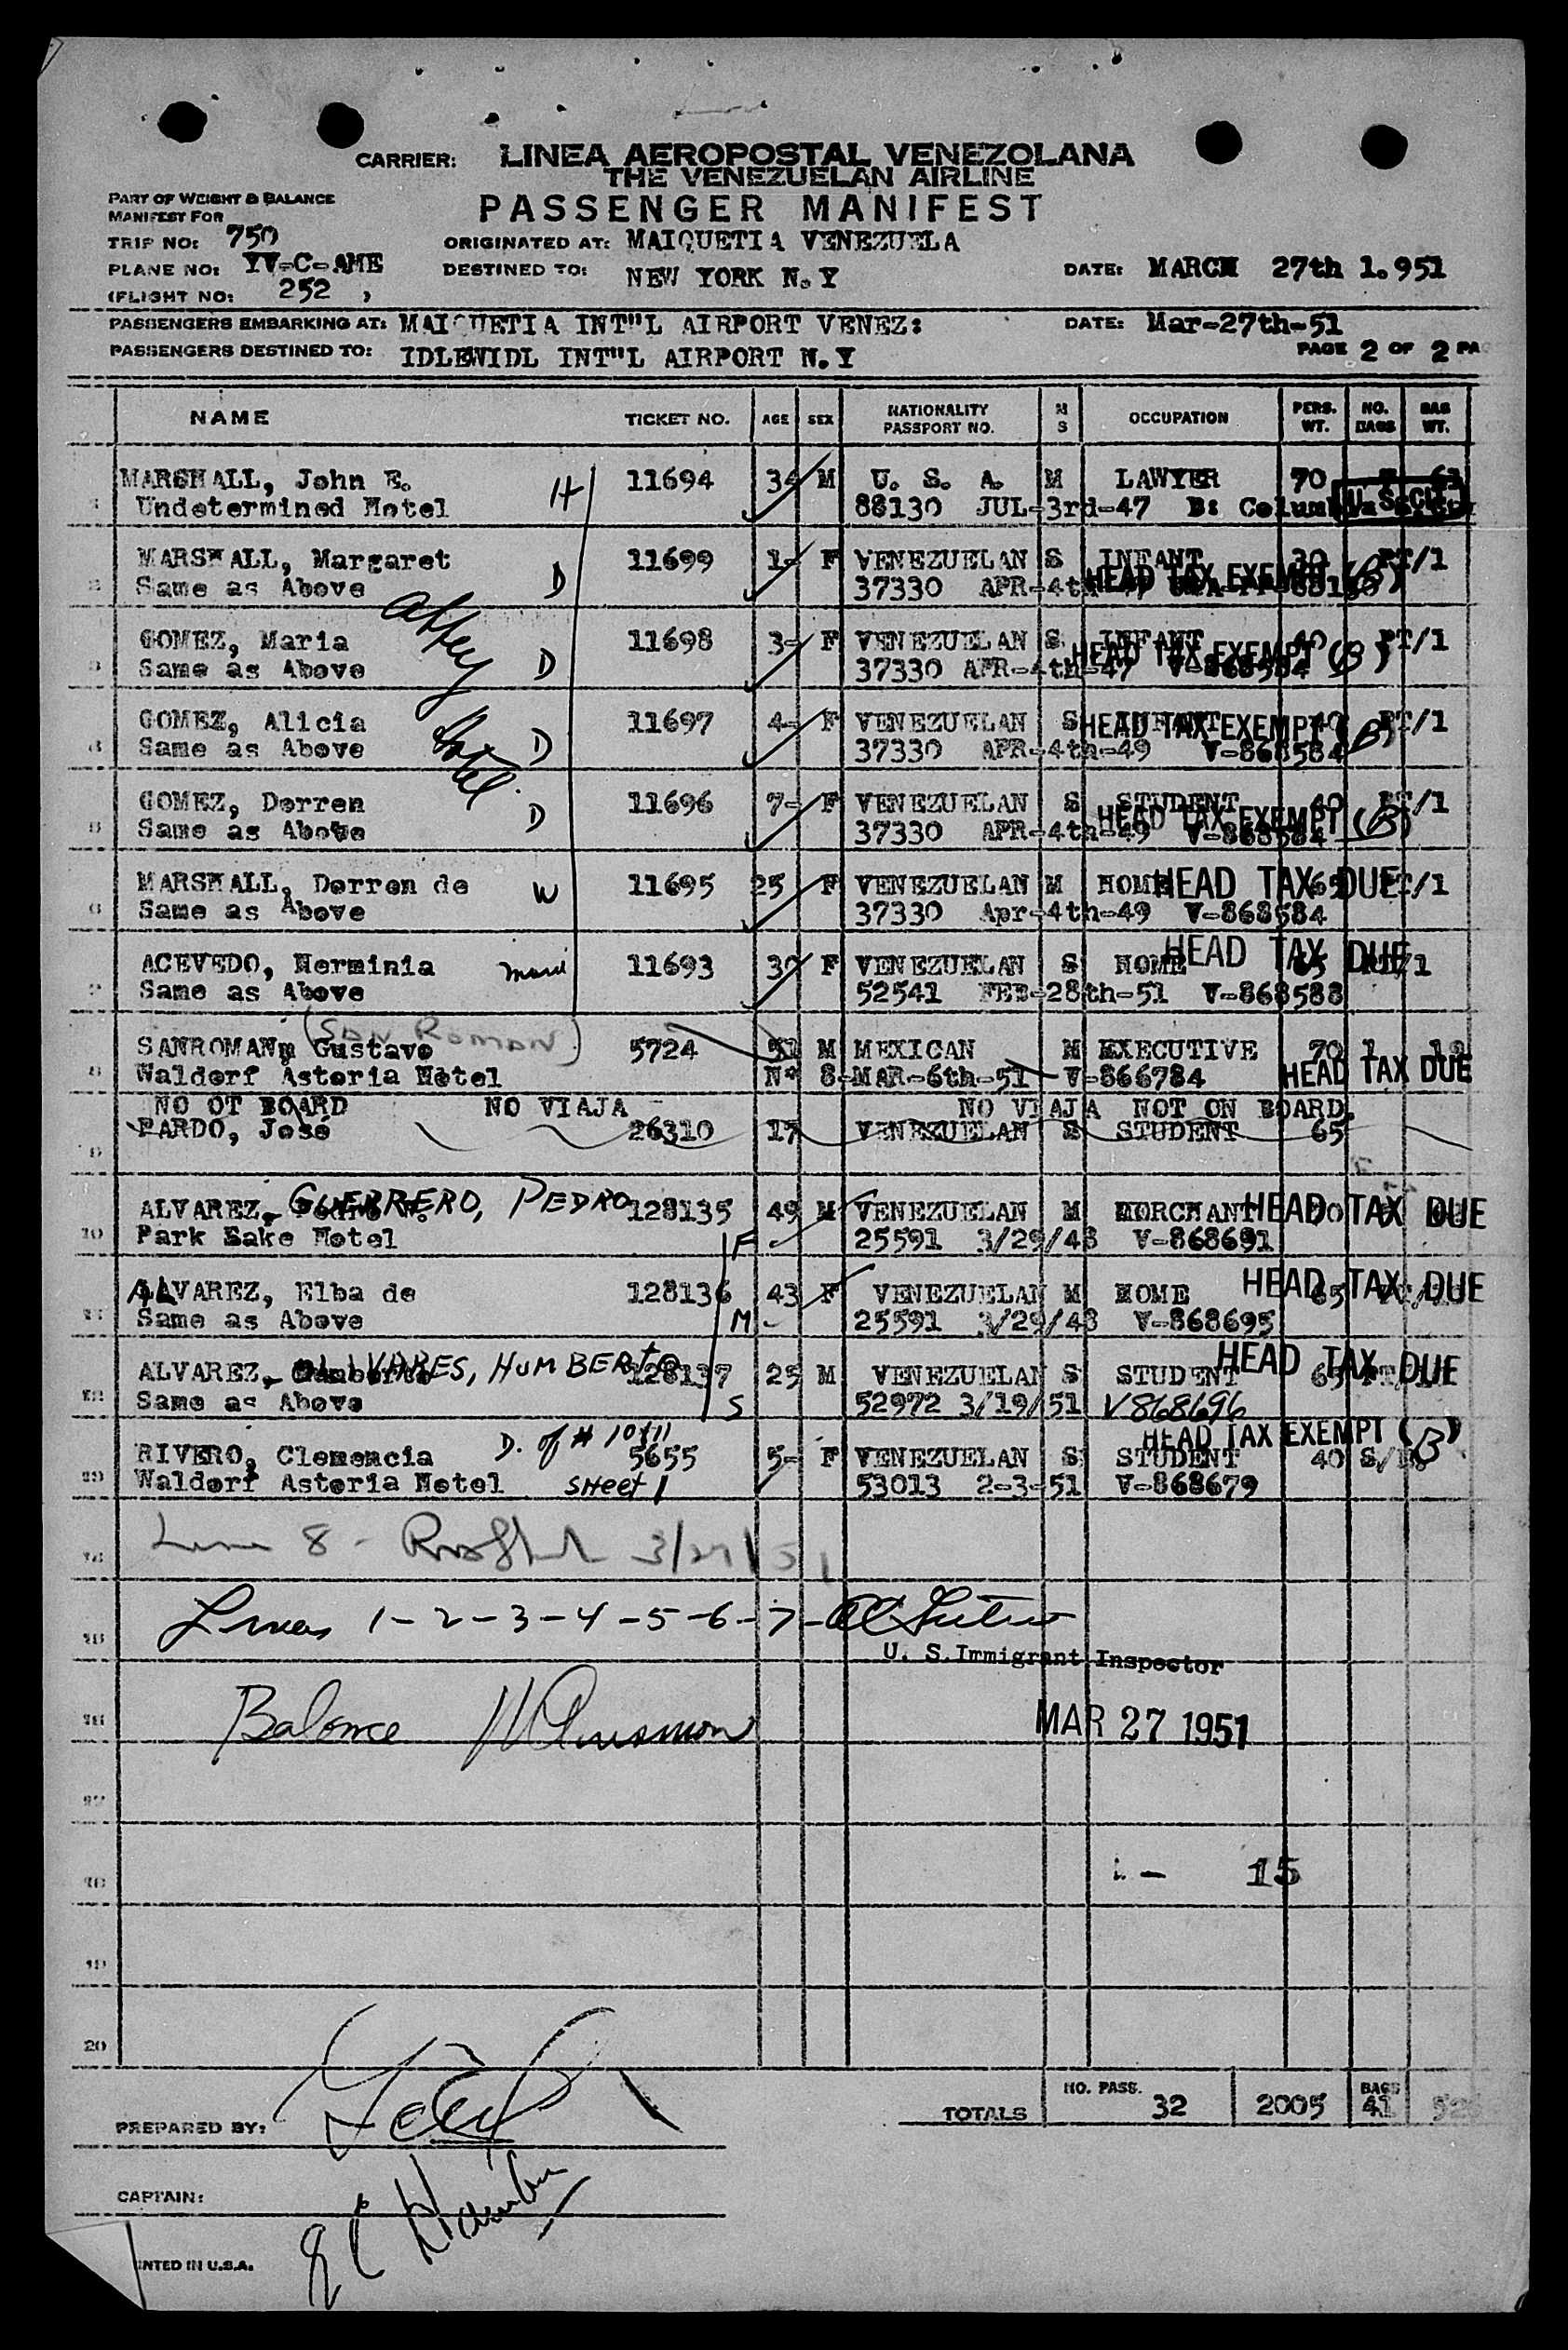 CARRIER: LINEA AEROPOSTAL VENEZOLANA
THE VENEZUELAN AIRLINE
PART OF WEIGHT & BALANCE
MANIFEST FOR
PASSENGER MANIFEST
TRIP NO: 750 ORIGINATED AT: MAIQUETIA VENEZUELA
PLANE NO: YV-C-AME DESTINED TO: NEW YORK N.Y DATE: MARCH 27th 1.951
(FLIGHT NO: 252 )
PASSENGERS EMBARKING AT: MAIQUETIA INT"L AIRPORT VENEZ: DATE: Mar-27th-51
PASSENGERS DESTINED TO: IDLEWIDL INT"L AIRPORT N.Y PAGE 2 OF 2 PA
NAME TICKET NO. AGE SEX NATIONALITY PASSPORT NO. M S OCCUPATION PERS. WT. NO. BAGS BAG WT.
MARSHALL, John E. H 11694 34 M U. S. A. M LAWYER 70 61
Undetermined Hotel 88130 JUL-3rd-47 B: U.S. CIT.
MARSHALL, Margaret D 11699 1- F VENEZUELAN S INFANT 30 PT/1
Same as Above 37330 APR-4th HEAD TAX EXEMPT (B)
GOMEZ, Maria 11698 3- F VENEZUELAN S INFANT 40 PT/1
Same as Above D 37330 APR-4th-47 V-868584 HEAD TAX EXEMPT (B)
GOMEZ, Alicia 11697 4- F VENEZUELAN S INFANT 40 PT/1
Same as Above D 37330 APR-4th-49 V-868584 HEAD TAX EXEMPT (B)
Hotel
GOMEZ, Dorren 11696 7- F VENEZUELAN S STUDENT 40 PT/1
Same as Above D 37330 APR-4th-49 V-868584 HEAD TAX EXEMPT (B)
MARSHALL, Dorren de W 11695 25 F VENEZUELAN M HOME 65 PT/1 HEAD TAX DUE
Same as Above 37330 Apr-4th-49 V-868584
ACEVEDO, Herminia maid 11693 30 F VENEZUELAN S HOME 65 HEAD TAX DUE
Same as Above 52541 FEB-28th-51 V-868588
(San Roman)
SANROMAN, Gustavo 5724 51 M MEXICAN M EXECUTIVE 70 1
Waldorf Asteria Hotel Nº 8-MAR-6th-51 V-866784 HEAD TAX DUE
NO OT BOARD NO VIAJA NO VIAJA NOT ON BOARD.
PARDO, José 26310 17 VENEZUELAN S STUDENT 65
ALVAREZ GUERRERO, PEDRO 128135 49 M VENEZUELAN M MORCHANT HEAD TAX DUE
Park Sake Hotel F 25591 3/29/48 V-868691
ALVAREZ, Elba de 128136 43 F VENEZUELAN M HOME 65 HEAD TAX DUE
Same as Above M 25591 3/29/48 V-868695
ALVAREZ OLIVARES, HUMBERTO 128137 25 M VENEZUELAN S STUDENT 65 HEAD TAX DUE
Same as Above S 52972 3/19/51 V868696
RIVERO, Clemencia D. of # 10 & 11 5655 5- F VENEZUELAN S STUDENT 40 HEAD TAX EXEMPT (B)
Waldorf Asteria Hotel SHeet 1 53013 2-3-51 V-868679
Line 8 - 3/27/51
Lines 1-2-3-4-5-6-7-
U. S. Immigrant Inspector
Balance
MAR 27 1951
- 15
20
TOTALS NO. PASS. 32 2005 BAGS 41
PREPARED BY:
CAPTAIN:
INTED IN U.S.A.